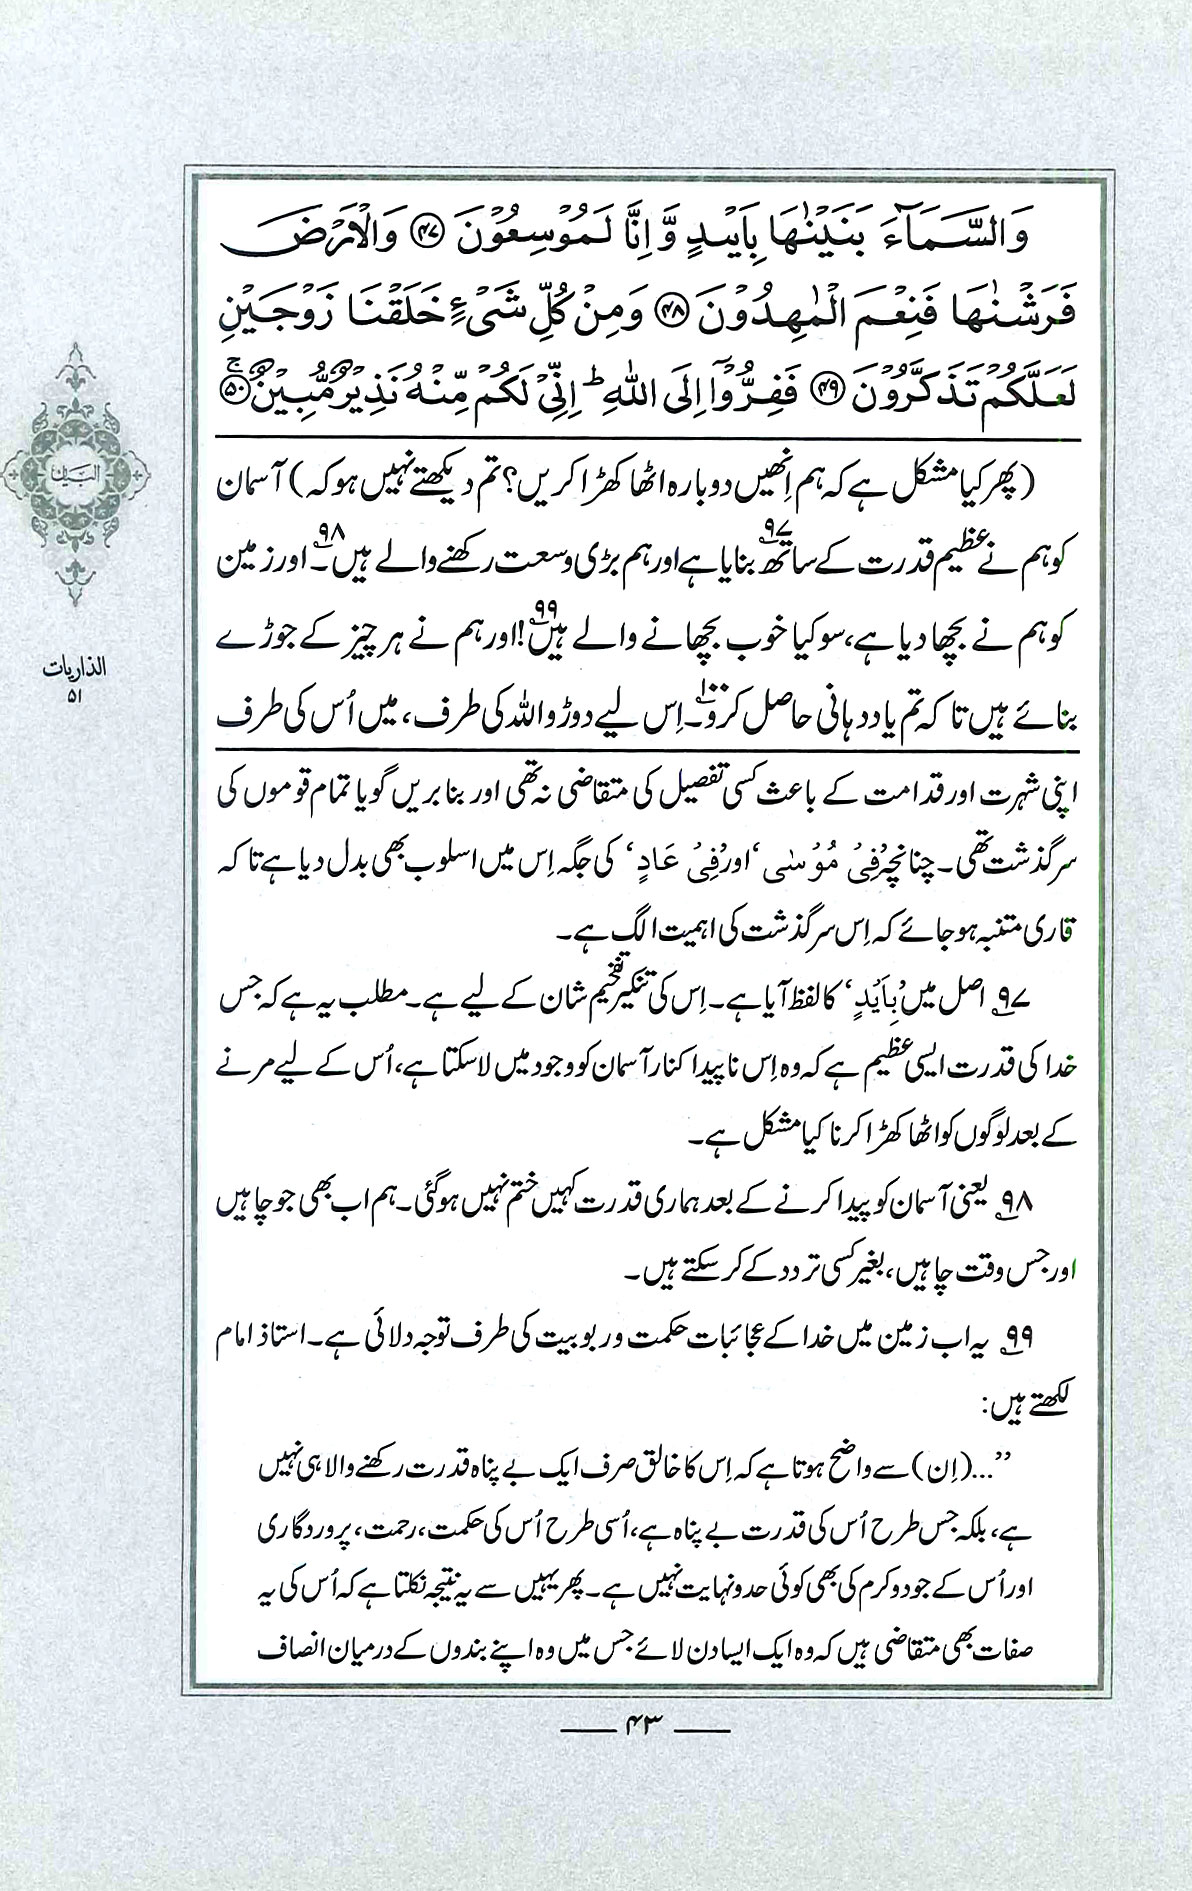 وَالسَّمَآءَ بَنَيْنٰهَا بِاَيْىدٍ وَّ اِنَّا لَمُوْسِعُوْنَ ﴿۴۷﴾ وَالْاَرْضَ
فَرَشْنٰهَا فَنِعْمَ الْمٰهِدُوْنَ ﴿۴۸﴾ وَمِنْ كُلِّ شَىْءٍ خَلَقْنَا زَوْجَيْنِ
لَعَلَّكُمْ تَذَكَّرُوْنَ ﴿۴۹﴾ فَفِرُّوْٓا اِلَى اللهِ ؕ اِنِّىْ لَكُمْ مِّنْهُ نَذِيْرٌ مُّبِيْنٌ ۚ ﴿۵۰﴾
(پھر کیا مشکل ہے کہ ہم اِنھیں دوبارہ اٹھا کھڑا کریں؟ تم دیکھتے نہیں ہو کہ) آسمان
کو ہم نے عظیم قدرت کے ساتھ ۹۷ بنایا ہے اور ہم بڑی وسعت رکھنے والے ہیں۔ ۹۸ اور زمین
کو ہم نے بچھا دیا ہے، سو کیا خوب بچھانے والے ہیں ۹۹! اور ہم نے ہر چیز کے جوڑے
بنائے ہیں تاکہ تم یاددہانی حاصل کرو۔ ۱۰۰ اِس لیے دوڑو اللہ کی طرف، میں اُس کی طرف
اپنی شہرت اور قدامت کے باعث کسی تفصیل کی متقاضی نہ تھی اور بنا بریں گویا تمام قوموں کی
سرگذشت تھی۔ چنانچہ ’فِیْ مُوْسٰی‘ اور ’فِیْ عَادٍ‘ کی جگہ اِس میں اسلوب بھی بدل دیا ہے تاکہ
قاری متنبہ ہو جائے کہ اِس سرگذشت کی اہمیت الگ ہے۔
۹۷ اصل میں ’بِاَیْدٍ‘ کا لفظ آیا ہے۔ اِس کی تنکیر تفخیم شان کے لیے ہے۔ مطلب یہ ہے کہ جس
خدا کی قدرت ایسی عظیم ہے کہ وہ اِس ناپیدا کنار آسمان کو وجود میں لا سکتا ہے، اُس کے لیے مرنے
کے بعد لوگوں کو اٹھا کھڑا کرنا کیا مشکل ہے۔
۹۸ یعنی آسمان کو پیدا کرنے کے بعد ہماری قدرت کہیں ختم نہیں ہو گئی۔ ہم اب بھی جو چاہیں
اور جس وقت چاہیں، بغیر کسی تردد کے کر سکتے ہیں۔
۹۹ یہ اب زمین میں خدا کے عجائبات حکمت و ربوبیت کی طرف توجہ دلائی ہے۔ استاذ امام
لکھتے ہیں:
”...(اِن) سے واضح ہوتا ہے کہ اِس کا خالق صرف ایک بے پناہ قدرت رکھنے والا ہی نہیں
ہے، بلکہ جس طرح اُس کی قدرت بے پناہ ہے، اُسی طرح اُس کی حکمت، رحمت، پروردگاری
اور اُس کے جود و کرم کی بھی کوئی حد و نہایت نہیں ہے۔ پھر یہیں سے یہ نتیجہ نکلتا ہے کہ اُس کی یہ
صفات بھی متقاضی ہیں کہ وہ ایک ایسا دن لائے جس میں وہ اپنے بندوں کے درمیان انصاف
البیان
الذاریات
۵۱
۴۳